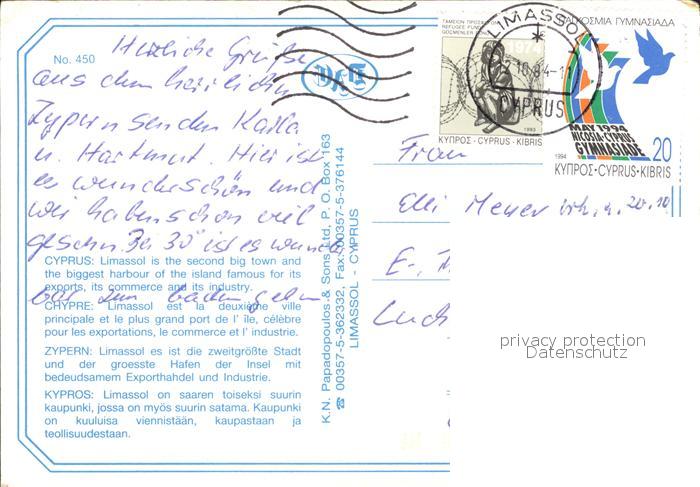 No. 450
Herzliche Grüße
aus dem herrlichen
Zypern senden Karla
u. Hartmut. Hier ist
es wunderschön und
wir haben schon viel
gesehn. Bei 30° ist es wunder
bar zum baden gehn
CYPRUS: Limassol is the second big town and
the biggest harbour of the island famous for its
exports, its commerce and its industry.
CHYPRE: Limassol est la deuxième ville
principale et le plus grand port de l' île, célèbre
pour les exportations, le commerce et l' industrie.
ZYPERN: Limassol es ist die zweitgrößte Stadt
und der groesste Hafen der Insel mit
bedeudsamem Exporthahdel und Industrie.
KYPROS: Limassol on saaren toiseksi suurin
kaupunki, jossa on myös suurin satama. Kaupunki
on kuuluisa viennistään, kaupastaan ja
teollisuudestaan.
K.N. Papadopoulos & Sons Ltd, P. O. Box 163
☎ 00357-5-362332, Fax: 00357-5-376144
LIMASSOL - CYPRUS
1974
1993
ΚΥΠΡΟΣ·CYPRUS·KIBRIS
LIMASSOL
CYPRUS
ΠΑΓΚΟΣΜΙΑ ΓΥΜΝΑΣΙΑΔΑ
MAY 1994
NICOSIA-CYPRUS
GYMNASIADE
1994
20
ΚΥΠΡΟΣ·CYPRUS·KIBRIS
Frau
Elli Meyer
privacy protection
Datenschutz